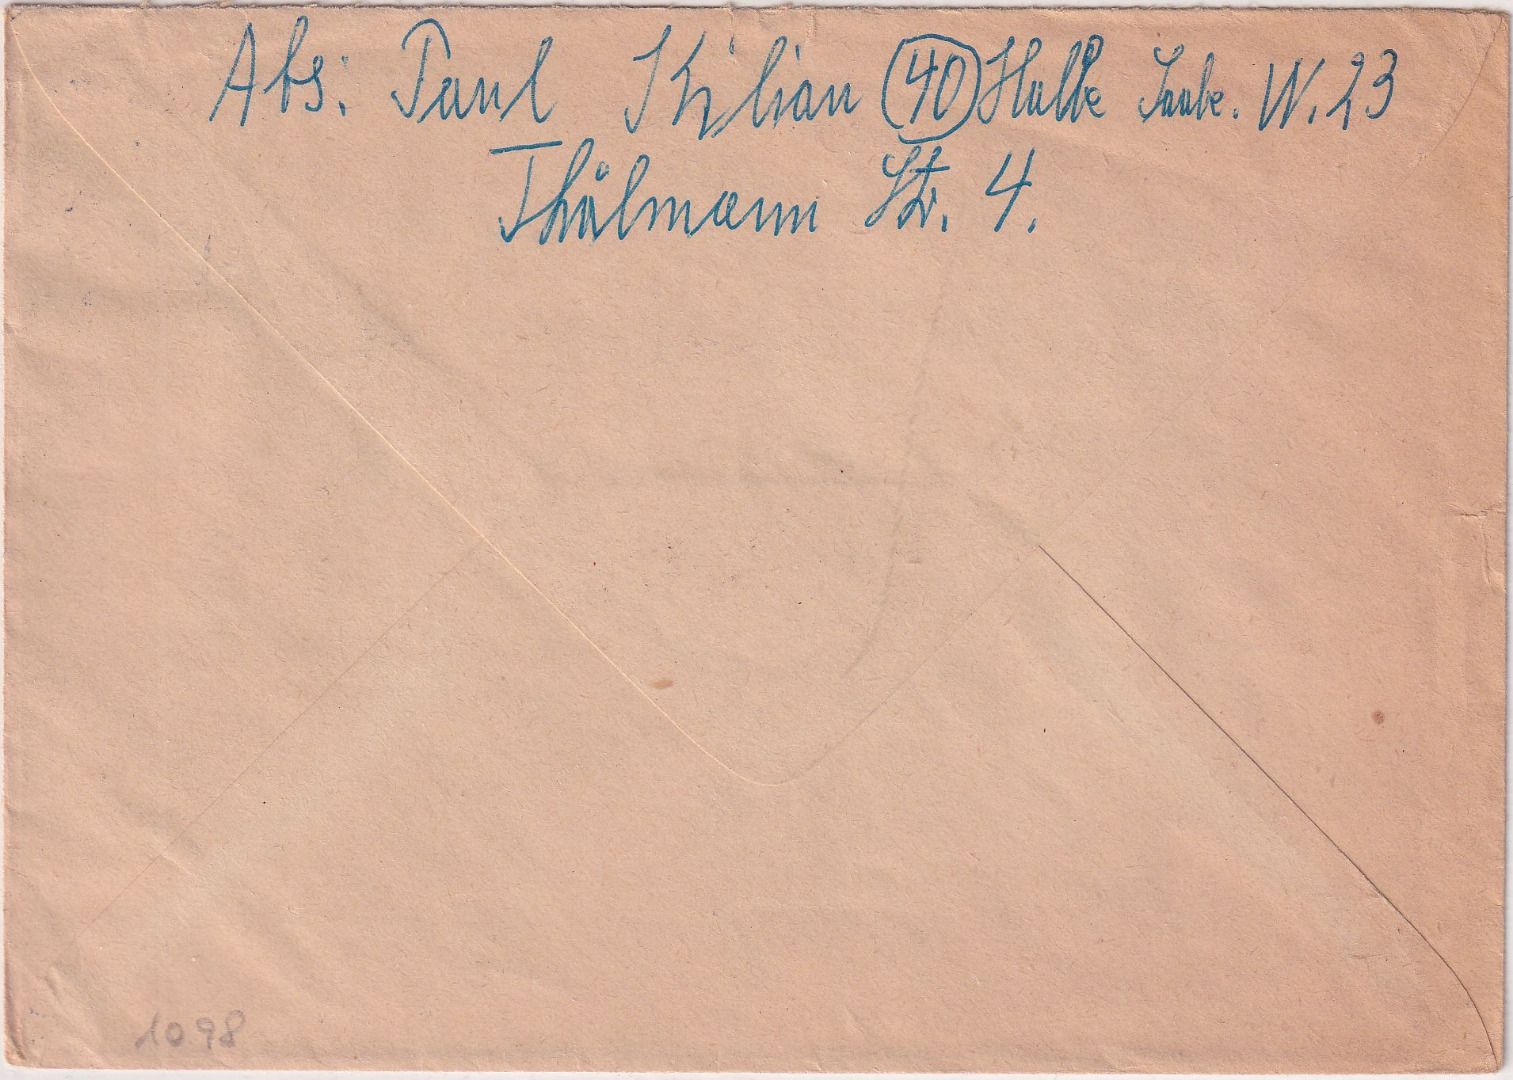 Abs: Paul Kilian (40) Halle Saale. W. 23
Thälmann Str. 4.
1098